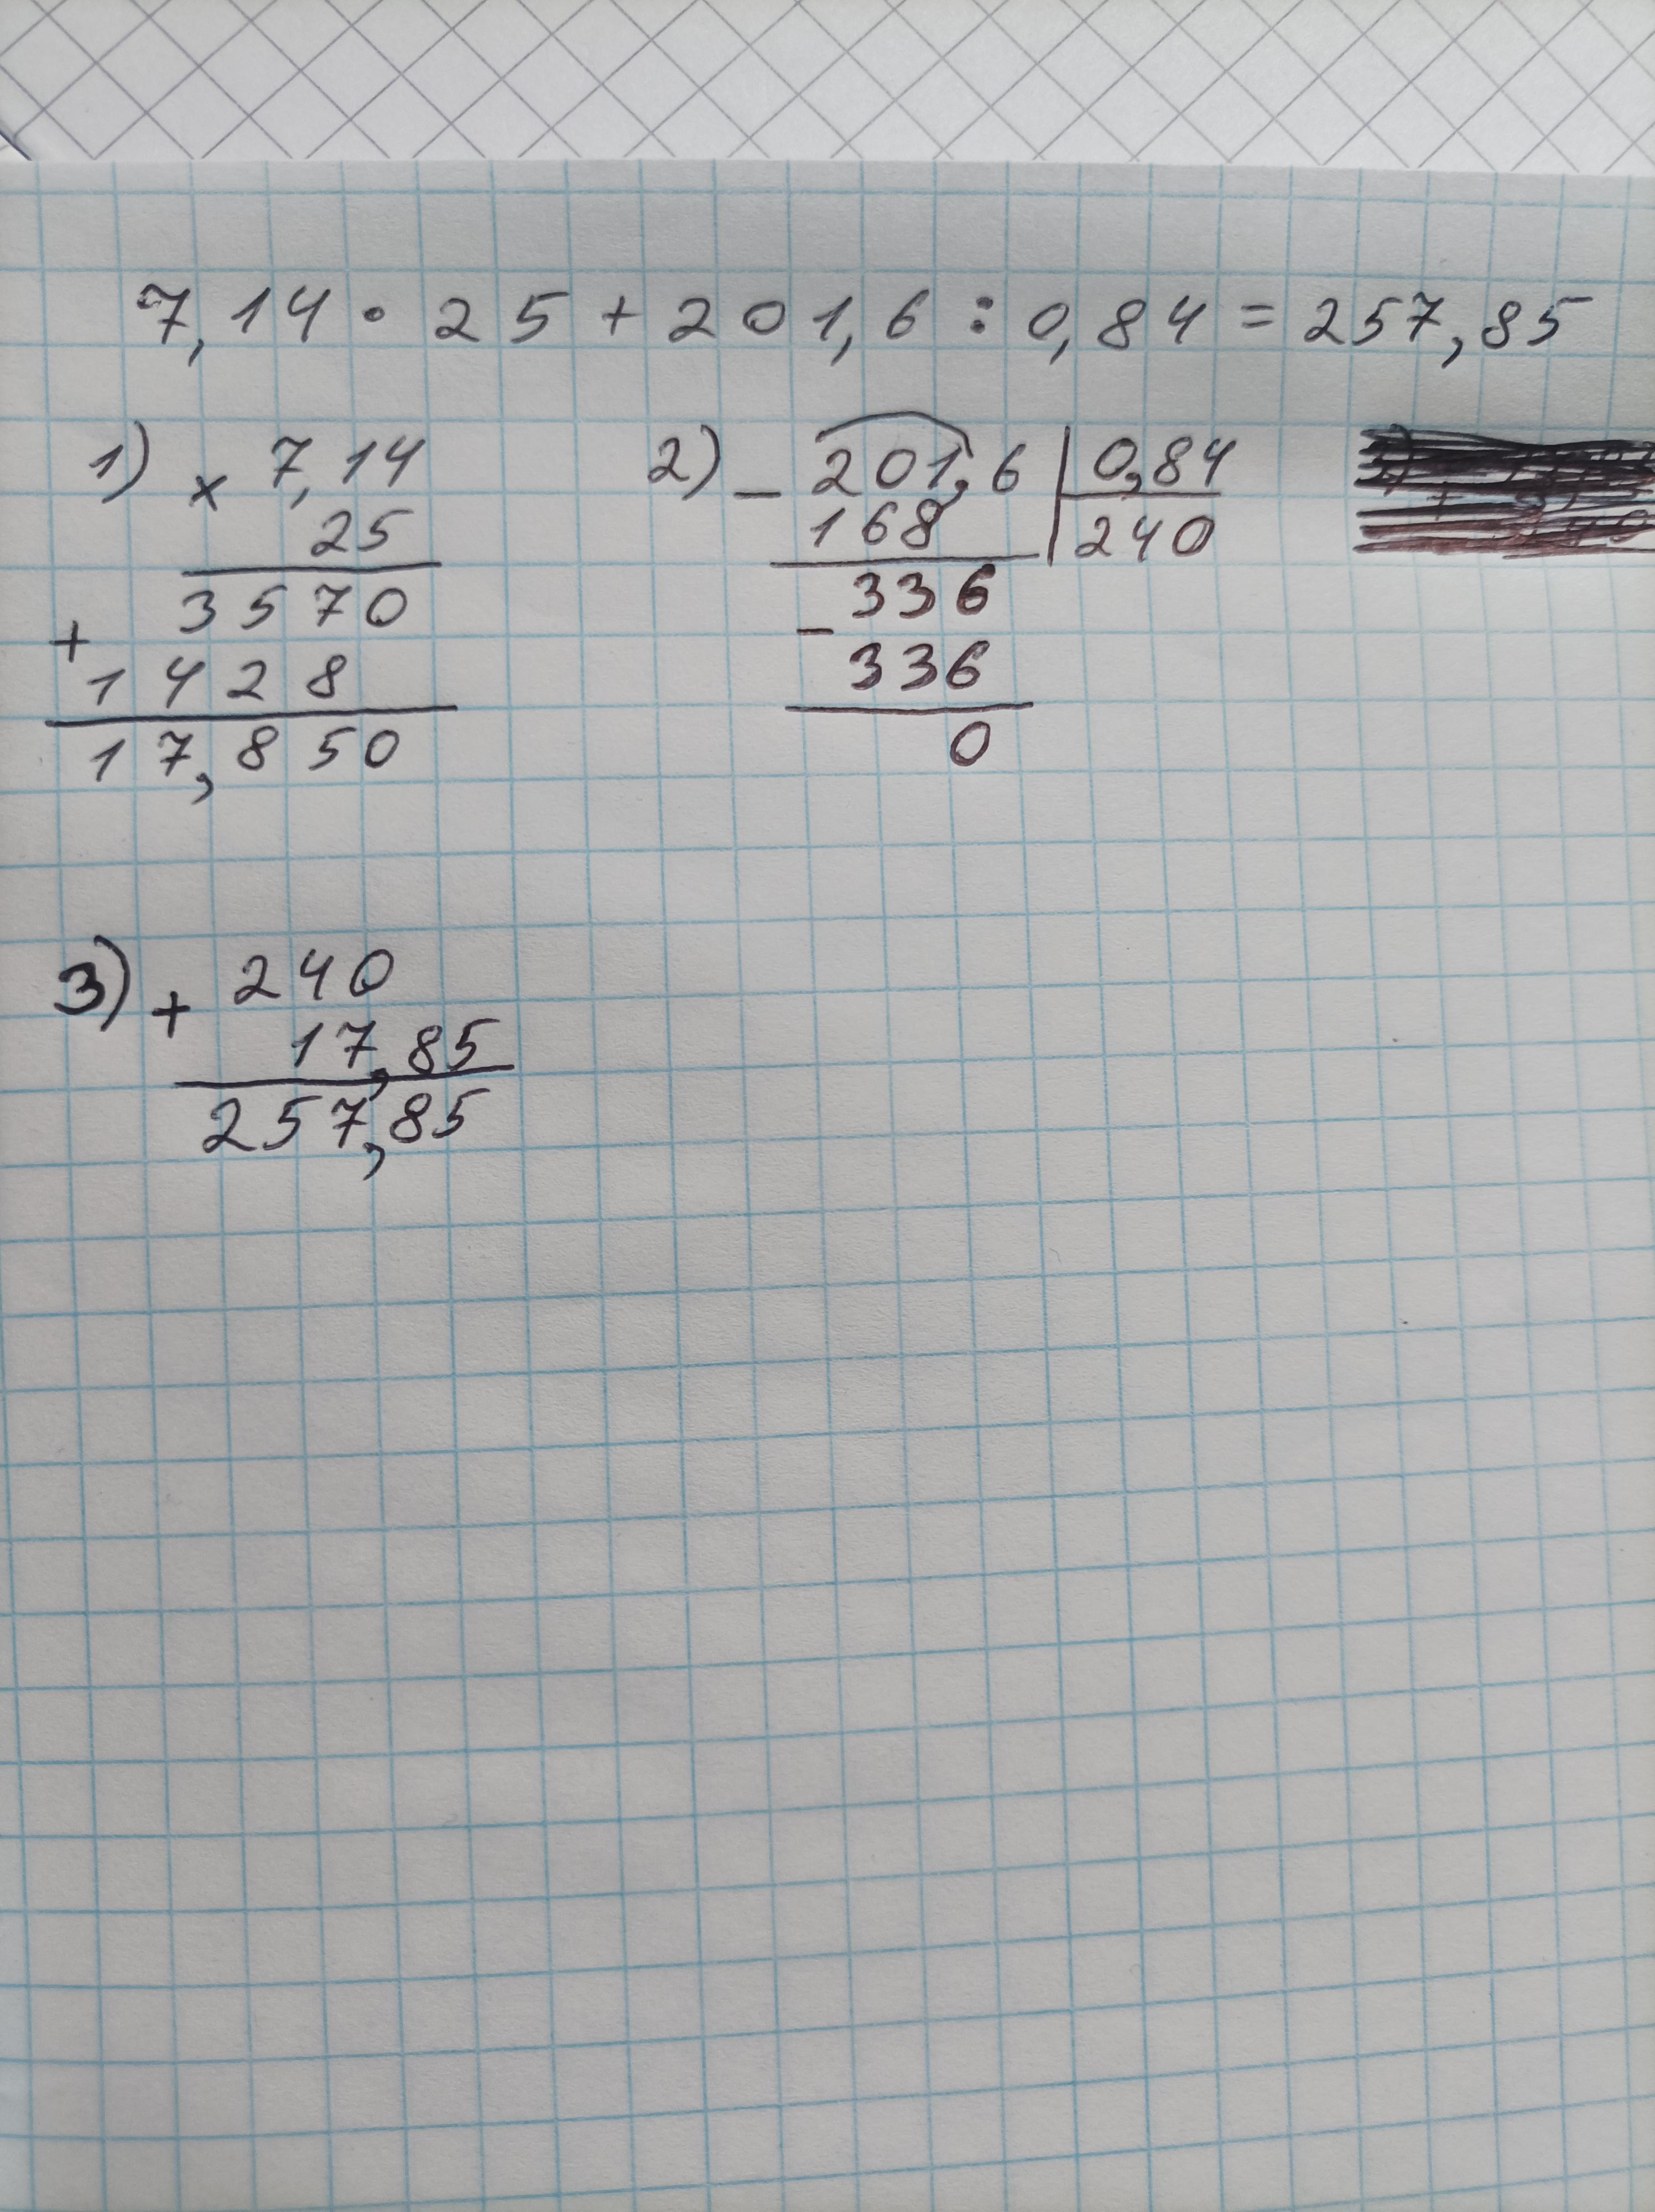 7,14 · 25 + 201,6 : 0,84 = 257,85
1) × 7,14
25
3570
+
1428
17,850
2) − 201,6 | 0,84
168 | 240
336
−
336
0
3) + 240
17,85
257,85